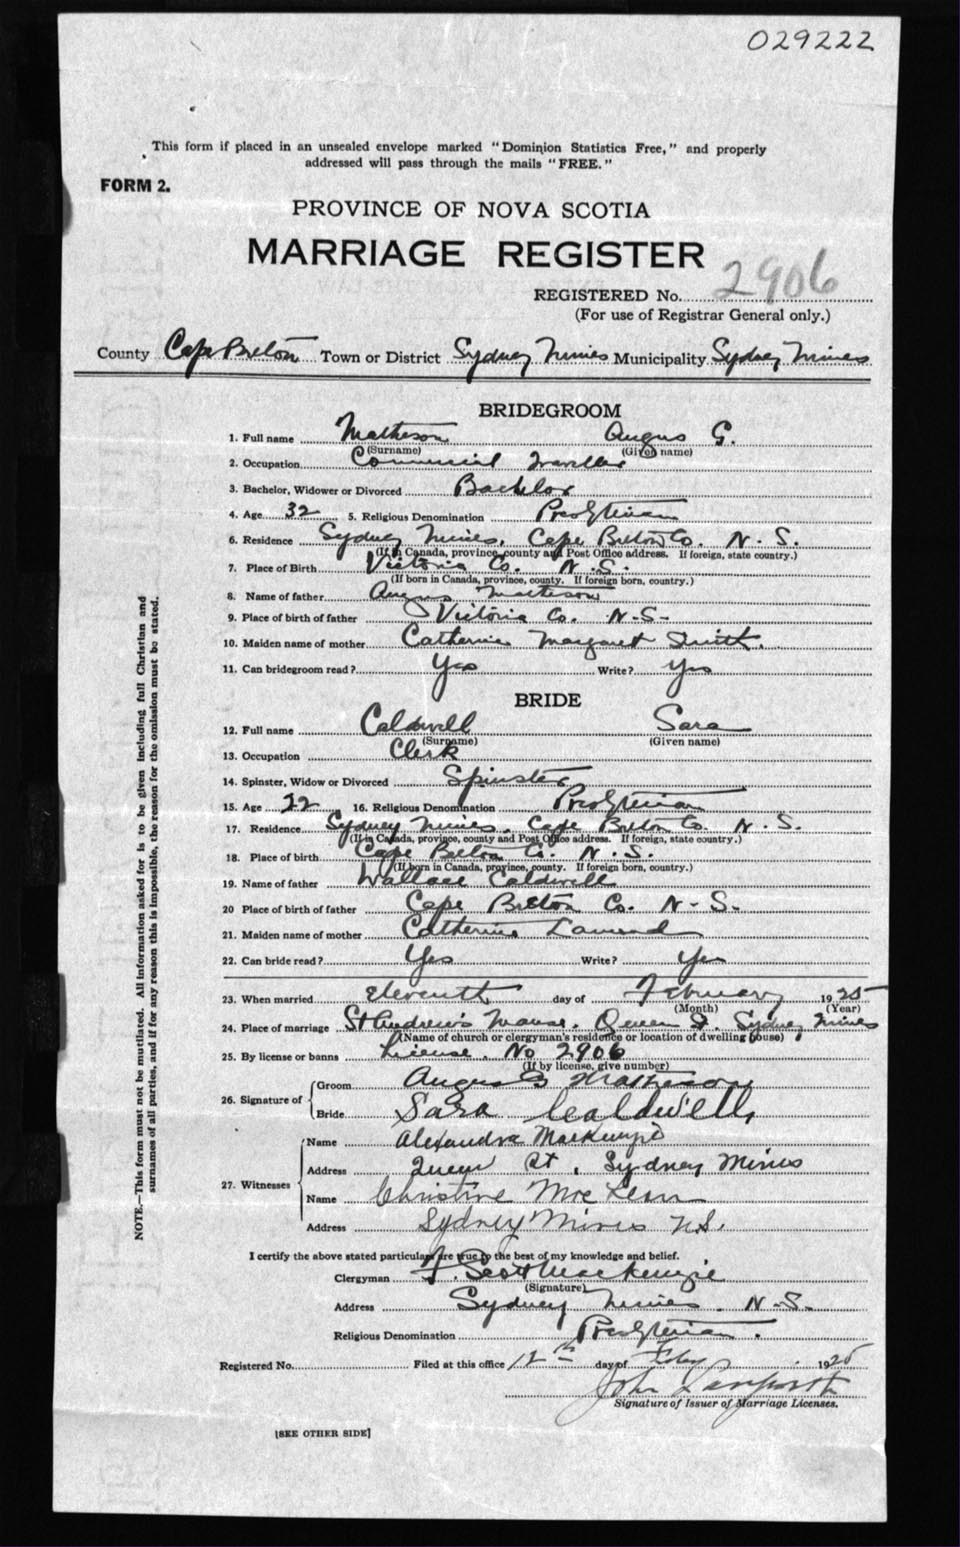 029222
This form if placed in an unsealed envelope marked "Dominion Statistics Free," and properly
addressed will pass through the mails "FREE."
FORM 2.
PROVINCE OF NOVA SCOTIA
MARRIAGE REGISTER
REGISTERED No. 2906
(For use of Registrar General only.)
County Cape Breton Town or District Sydney Mines Municipality Sydney Mines
BRIDEGROOM
1. Full name Matheson Angus G.
(Surname) (Given name)
2. Occupation Commercial Traveller
3. Bachelor, Widower or Divorced Bachelor
4. Age 32 5. Religious Denomination Presbyterian
6. Residence Sydney Mines, Cape Breton Co. N.S.
(If in Canada, province, county and Post Office address. If foreign, state country.)
7. Place of Birth Victoria Co. N.S.
(If born in Canada, province, county. If foreign born, country.)
8. Name of father Angus Matheson
9. Place of birth of father Victoria Co. N.S.
10. Maiden name of mother Catherine Margaret Smith.
11. Can bridegroom read? Yes Write? Yes
BRIDE
12. Full name Caldwell Sara
(Surname) (Given name)
13. Occupation Clerk
14. Spinster, Widow or Divorced Spinster
15. Age 22 16. Religious Denomination Presbyterian
17. Residence Sydney Mines, Cape Breton Co. N.S.
(If in Canada, province, county and Post Office address. If foreign, state country.)
18. Place of birth Cape Breton Co. N.S.
(If born in Canada, province, county. If foreign born, country.)
19. Name of father Wallace Caldwell
20 Place of birth of father Cape Breton Co. N.S.
21. Maiden name of mother Catherine
22. Can bride read? Yes Write? Yes
23. When married Eleventh day of February 1925
(Month) (Year)
24. Place of marriage St Andrew's Manse, Queen St. Sydney Mines
(Name of church or clergyman's residence or location of dwelling house)
25. By license or banns License. No 2906
(If by license, give number)
26. Signature of
Groom Angus G Matheson
Bride Sara Caldwell
27. Witnesses
Name Alexandra MacKenzie
Address Queen St, Sydney Mines
Name Christine
Address Sydney Mines N.S.
I certify the above stated particulars are true to the best of my knowledge and belief.
Clergyman F. Scott MacKenzie
(Signature)
Address Sydney Mines. N.S.
Religious Denomination Presbyterian.
Registered No. Filed at this office 12th day of Feby 1925
John
Signature of Issuer of Marriage Licenses.
[SEE OTHER SIDE]
NOTE.—This form must not be mutilated. All information asked for is to be given including full Christian and
surnames of all parties, and if for any reason this is impossible, the reason for the omission must be stated.